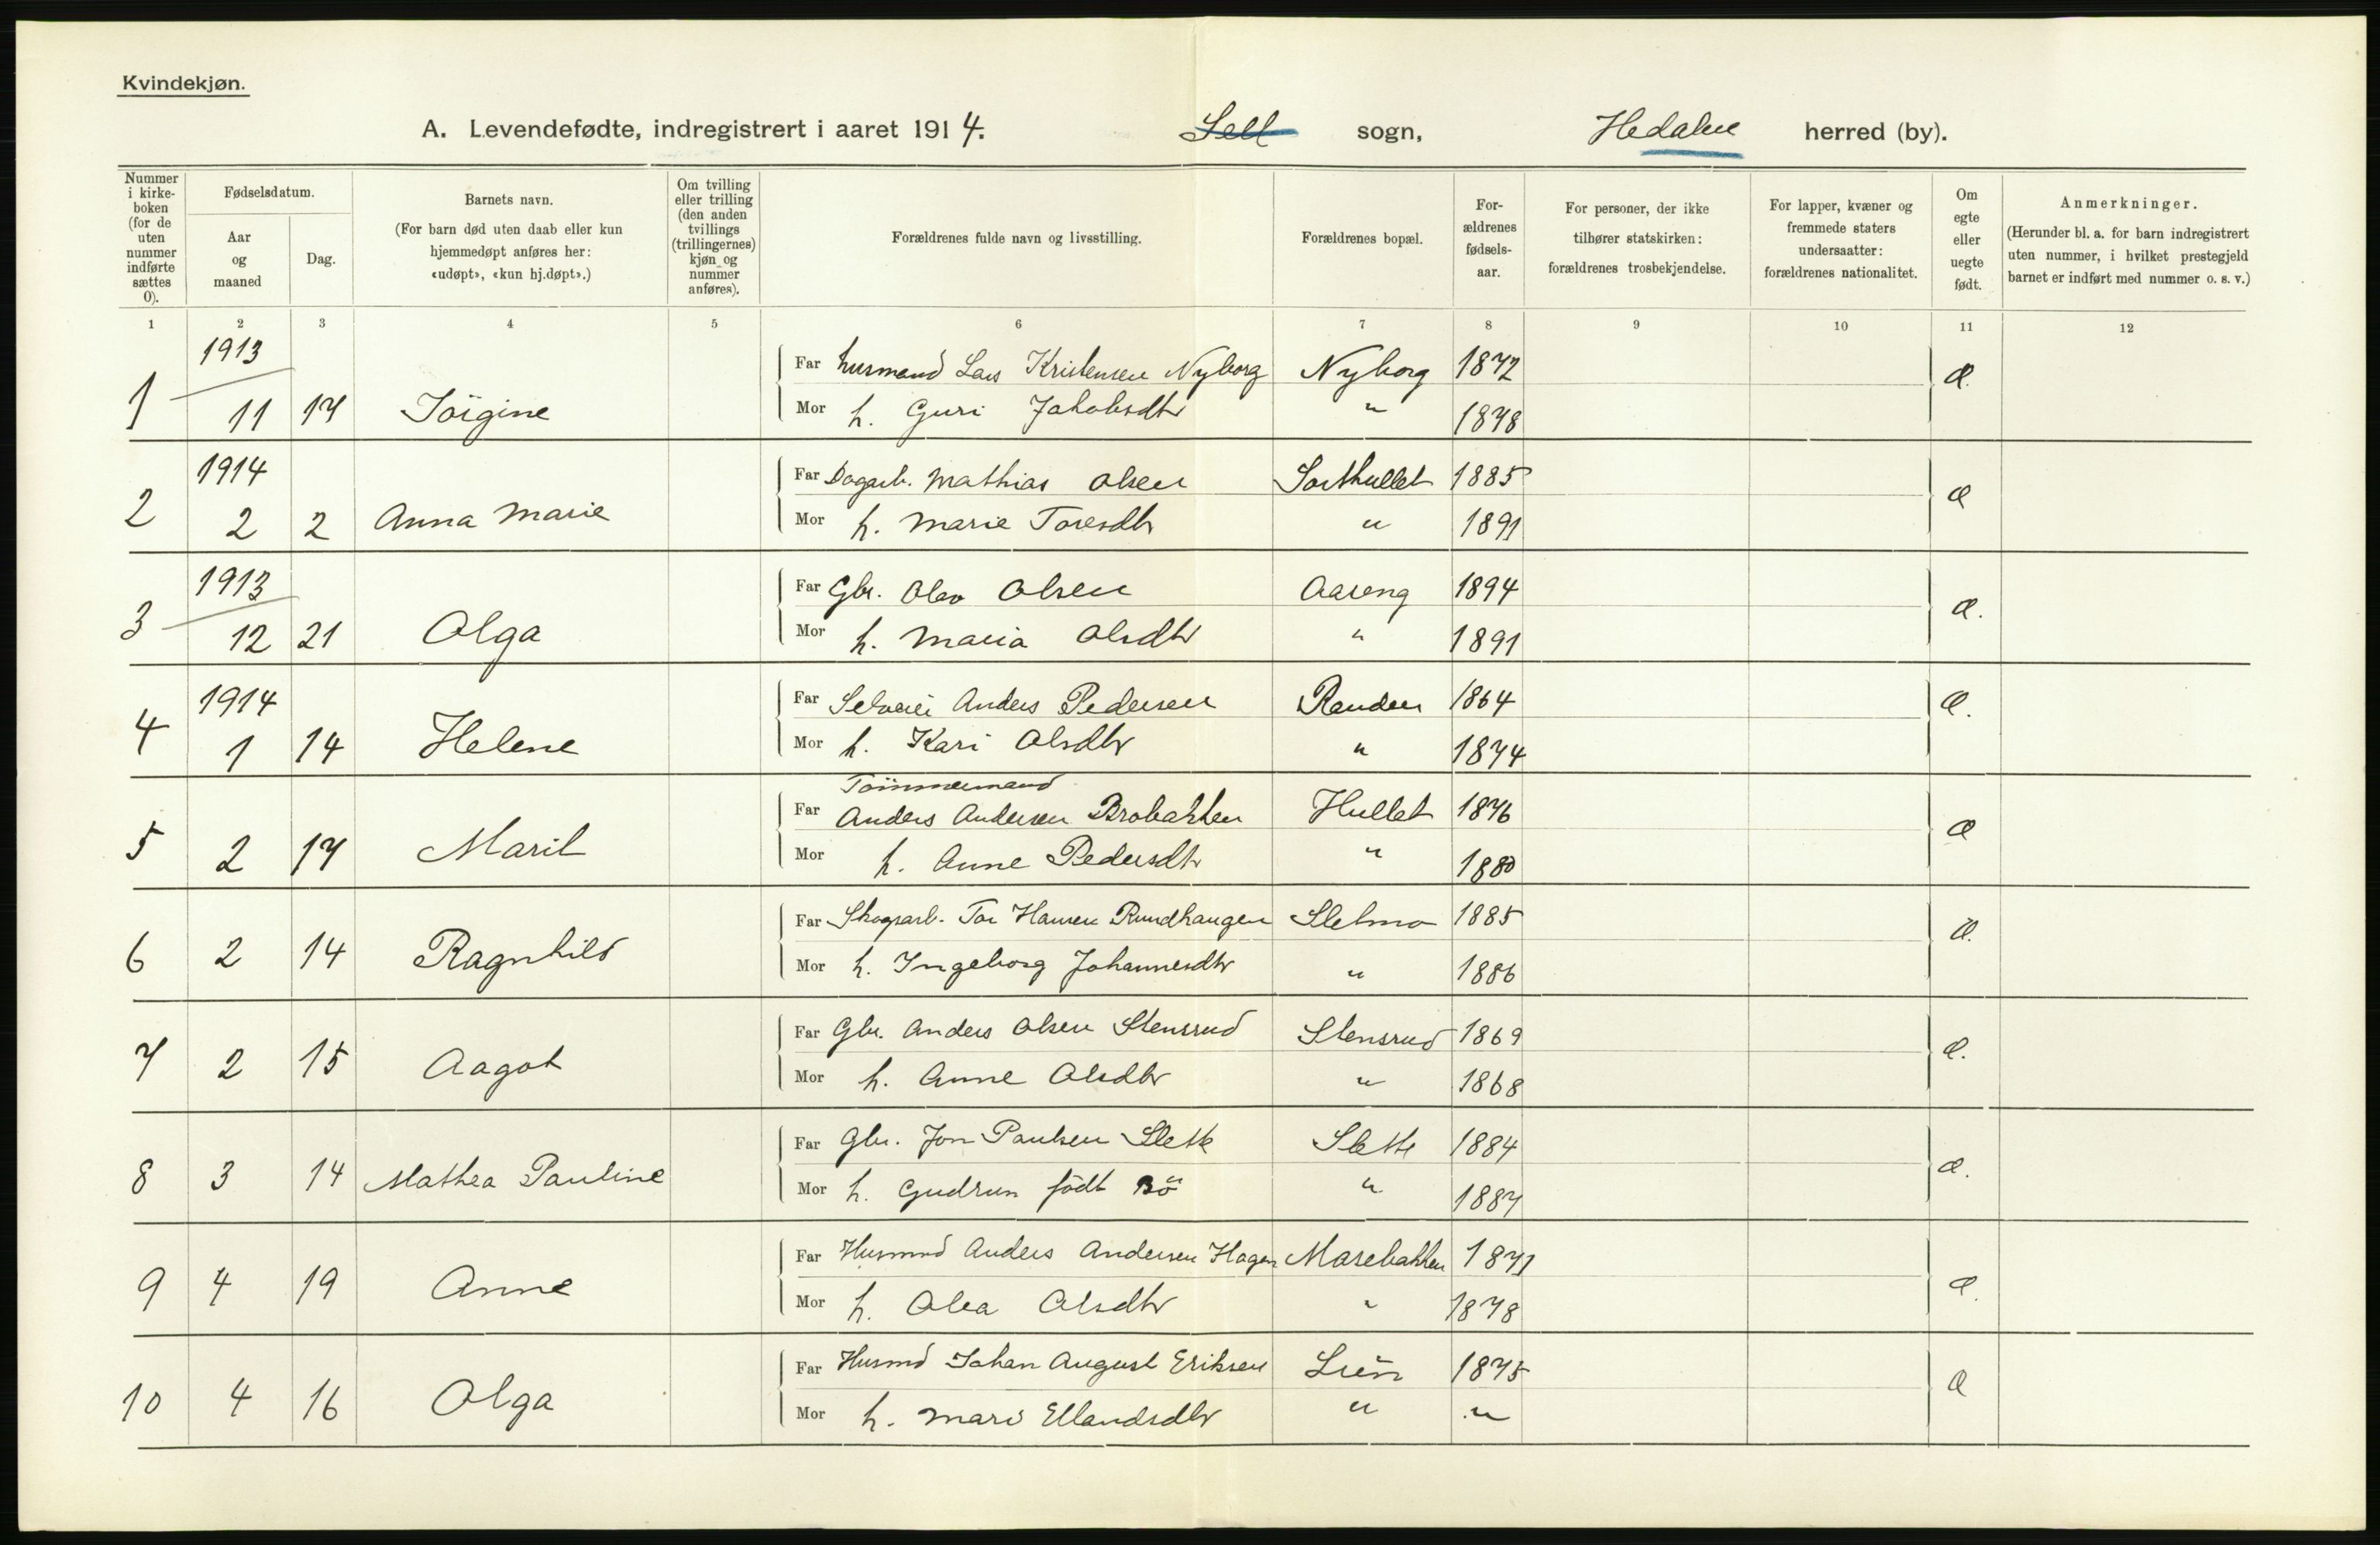 Kvindekjøn.
A. Levendefødte, indregistrert i aaret 1914. Sell sogn, Hedalen herred (by).
Nummer i kirke-boken (for de uten nummer indførte sættes 0).
Fødselsdatum.
Aar og maaned
Dag.
Barnets navn.
(For barn død uten daab eller kun hjemmedøpt anføres her: «udøpt», «kun hj.døpt».)
Om tvilling eller trilling (den anden tvillings (trillingernes) kjøn og nummer anføres).
Forældrenes fulde navn og livsstilling.
Forældrenes bopæl.
For-ældrenes fødsels-aar.
For personer, der ikke tilhører statskirken: forældrenes trosbekjendelse.
For lapper, kvæner og fremmede staters undersaatter: forældrenes nationalitet.
Om egte eller uegte født.
Anmerkninger.
(Herunder bl. a. for barn indregistrert uten nummer, i hvilket prestegjeld barnet er indført med nummer o. s. v.)
1 2 3 4 5 6 7 8 9 10 11 12
1913
Far husmand Lars Kristensen Nyborg Nyborg 1872 Æ.
1 11 17 Jörgine
Mor h. Guri Jakobsdtr " 1878
1914
Far Dagarb. Mathias Olsen Sorthullet 1885 Æ
2 2 2 Anna Marie
Mor h. Marie Toresdtr " 1891
1913
Far Gbr. Olav Olsen Aaseng 1894 Æ.
3 12 21 Olga
Mor h. Maria Olsdtr " 1891
1914
Far Selveier Anders Pedersen Randen 1864 Æ.
4 1 14 Helene
Mor h. Kari Olsdtr " 1874
Tömmermand
Far Anders Andersen Brobakken Hullet 1876 Æ
5 2 17 Marit
Mor h. Anne Pedersdtr " 1880
Far Skogsarb. Tor Hansen Rundhaugen Sletmo 1885 Æ.
6 2 14 Ragnhild
Mor h. Ingeborg Johannesdtr " 1886
Far Gbr. Anders Olsen Stensrud Stensrud 1869 Æ.
7 2 15 Aagot
Mor h. Anne Olsdtr " 1868
Far Gbr. Jon Paulsen Slette Slette 1884 Æ.
8 3 14 Mathea Pauline
Mor h. Gudrun födt Bö " 1887
Far Husmnd Anders Andersen Hagen Marebakken 1871 Æ.
9 4 19 Anne
Mor h. Olea Olsdtr " 1878
Far Husmd Johan August Eriksen 1875 Æ
10 4 16 Olga
Mor h. Mari Ellandsdtr " "